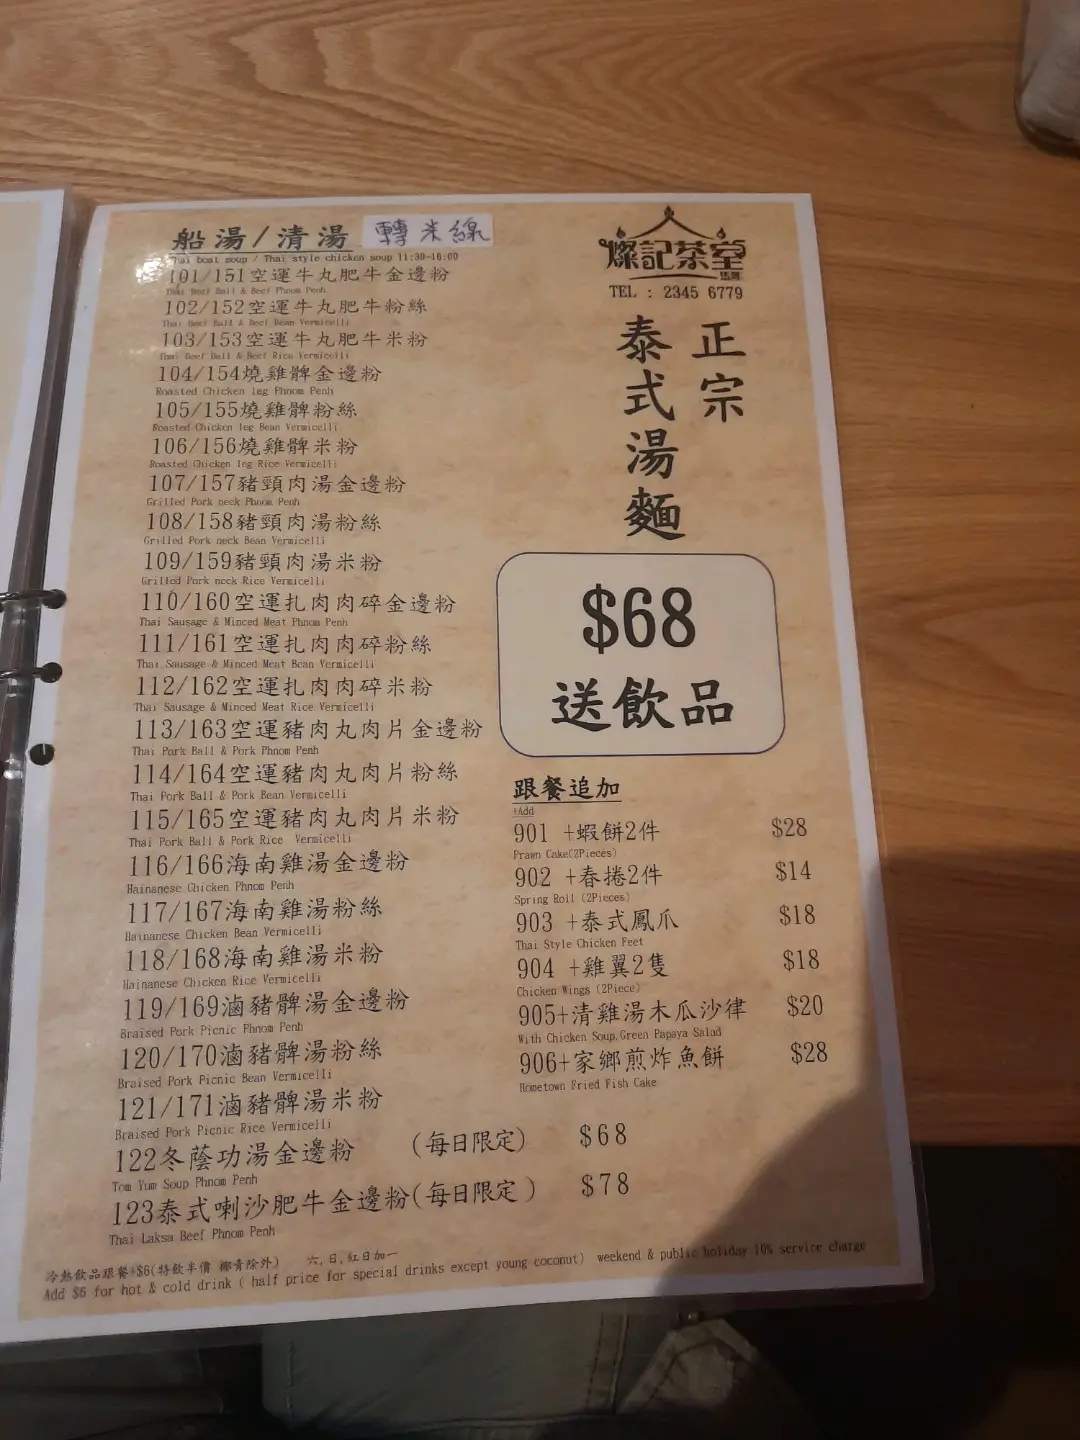 船湯/清湯 轉米線
Thai boat soup / Thai style chicken soup 11:30-16:00
101/151空運牛丸肥牛金邊粉
Thai Beef Ball & Beef Phnom Penh
102/152空運牛丸肥牛粉絲
Thai Beef Ball & Beef Bean Vermicelli
103/153空運牛丸肥牛米粉
Thai Beef Ball & Beef Rice Vermicelli
104/154燒雞髀金邊粉
Roasted Chicken leg Phnom Penh
105/155燒雞髀粉絲
Roasted Chicken leg Bean Vermicelli
106/156燒雞髀米粉
Roasted Chicken leg Rice Vermicelli
107/157豬頸肉湯金邊粉
Grilled Pork neck Phnom Penh
108/158豬頸肉湯粉絲
Grilled Pork neck Bean Vermicelli
109/159豬頸肉湯米粉
Grilled Pork neck Rice Vermicelli
110/160空運扎肉肉碎金邊粉
Thai Sausage & Minced Meat Phnom Penh
111/161空運扎肉肉碎粉絲
Thai Sausage & Minced Meat Bean Vermicelli
112/162空運扎肉肉碎米粉
Thai Sausage & Minced Meat Rice Vermicelli
113/163空運豬肉丸肉片金邊粉
Thai Pork Ball & Pork Phnom Penh
114/164空運豬肉丸肉片粉絲
Thai Pork Ball & Pork Bean Vermicelli
115/165空運豬肉丸肉片米粉
Thai Pork Ball & Pork Rice Vermicelli
116/166海南雞湯金邊粉
Hainanese Chicken Phnom Penh
117/167海南雞湯粉絲
Hainanese Chicken Bean Vermicelli
118/168海南雞湯米粉
Hainanese Chicken Rice Vermicelli
119/169滷豬髀湯金邊粉
Braised Pork Picnic Phnom Penh
120/170滷豬髀湯粉絲
Braised Pork Picnic Bean Vermicelli
121/171滷豬髀湯米粉
Braised Pork Picnic Rice Vermicelli
122冬蔭功湯金邊粉 (每日限定) $68
Tom Yum Soup Phnom Penh
123泰式喇沙肥牛金邊粉(每日限定) $78
Thai Laksa Beef Phnom Penh
燦記茶室
TEL : 2345 6779
正宗
泰式湯麵
$68
送飲品
跟餐追加
+Add
901 +蝦餅2件 $28
Prawn Cake(2Pieces)
902 +春捲2件 $14
Spring Roll (2Pieces)
903 +泰式鳳爪 $18
Thai Style Chicken Feet
904 +雞翼2隻 $18
Chicken Wings (2Piece)
905+清雞湯木瓜沙律 $20
With Chicken Soup,Green Papaya Salad
906+家鄉煎炸魚餅 $28
Hometown Fried Fish Cake
冷熱飲品跟餐+$6(特飲半價 椰青除外) 六,日,紅日加一
Add $6 for hot & cold drink ( half price for special drinks except young coconut) weekend & public holiday 10% service charge